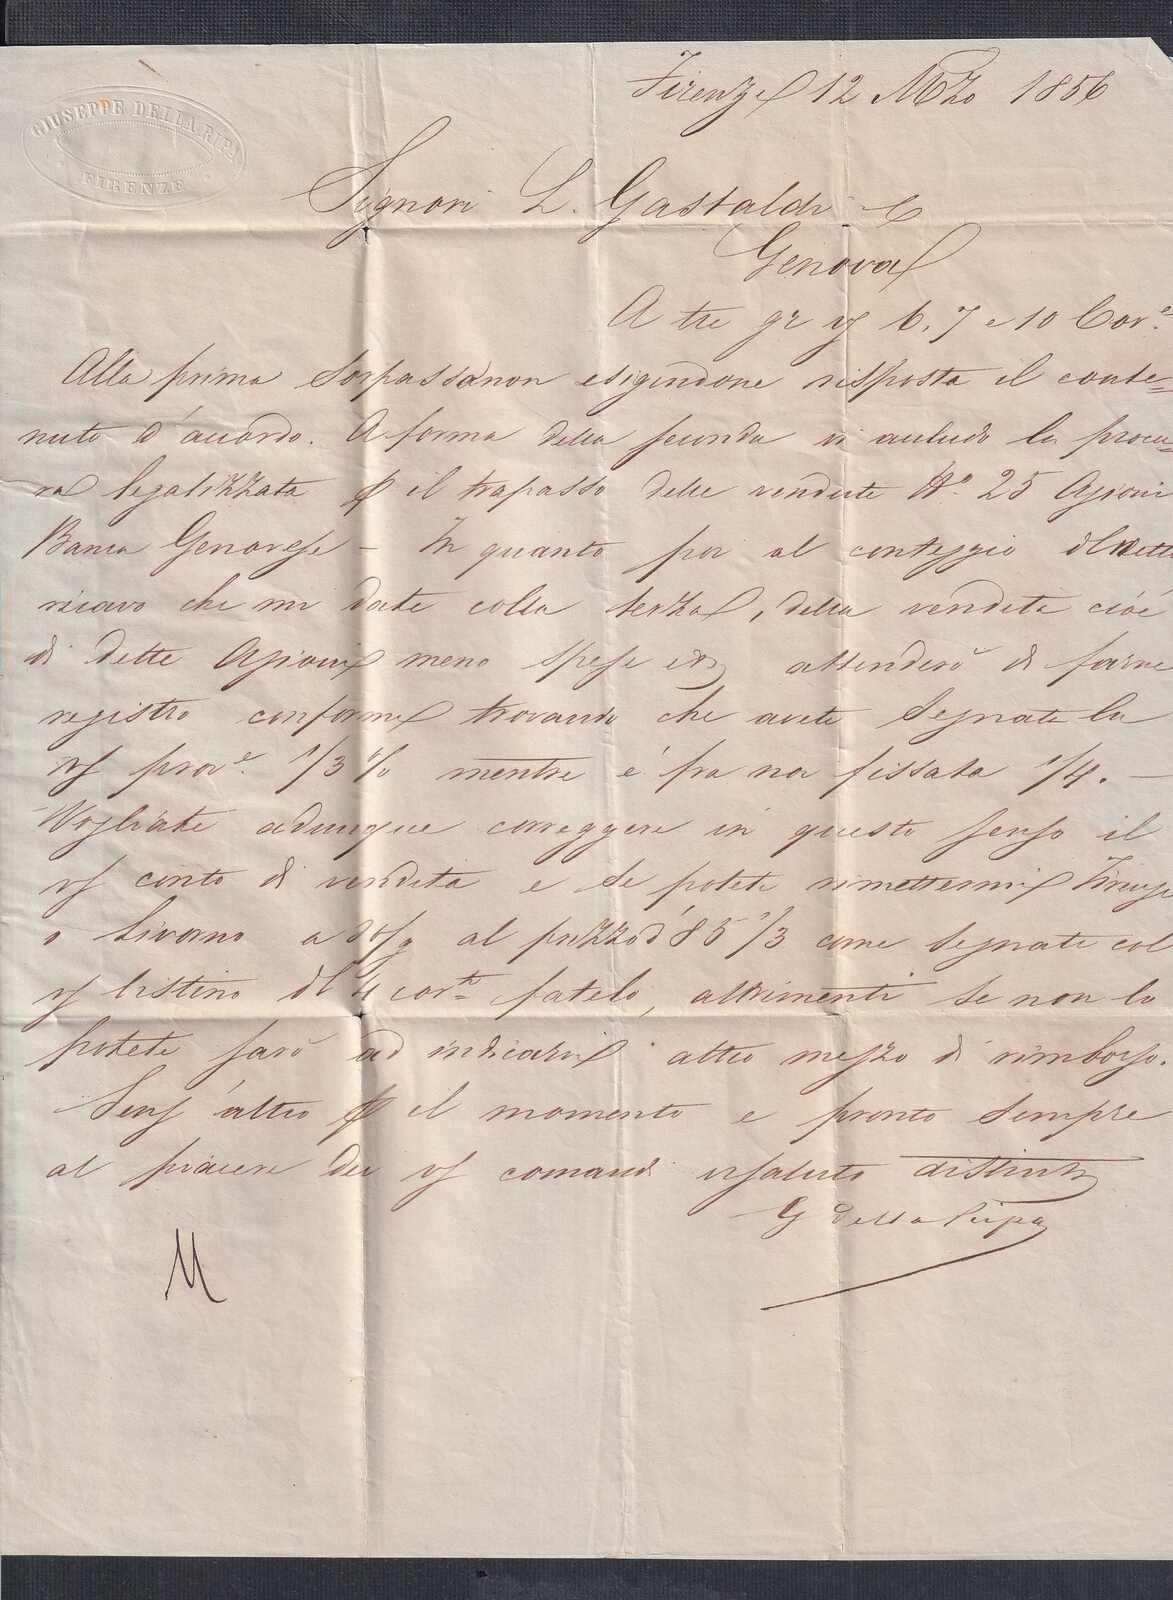 GIUSEPPE DELLA RIPA
FIRENZE
Firenze 12 Mzo 1856
Signori L. Gastaldi e C
Genova
A tre gr vs 6, 7 e 10 Corr.e
Alla prima sorpasso non esigendone risposta il conte=
nuto d'accordo. A forma della seconda vi accludo la procu=
ra legalizzata p il trapasso delle vendute No. 25 Azioni
Banca Genovese - In quanto poi al conteggio del netto
ricavo che mi date colla terza, della vendita cioè
di dette Azioni meno spese attenderò di farne
registro conforme trovando che avete segnate la
vs prov.e 1/3 % mentre è fra noi fissata 1/4. -
Vogliate adunque correggere in questo senso il
vs conto di vendita e se potete rimettermi Firenze
o Livorno a al prezzo d' 85 1/3 come segnate col
vs listino del 4 corr.te fatelo, altrimenti se non lo
potete sarò ad indicarvi altro mezzo di rimborso.
Senz'altro p il momento e pronto sempre
al piacere dei vs comandi vi saluto distint
G Della Ripa
M